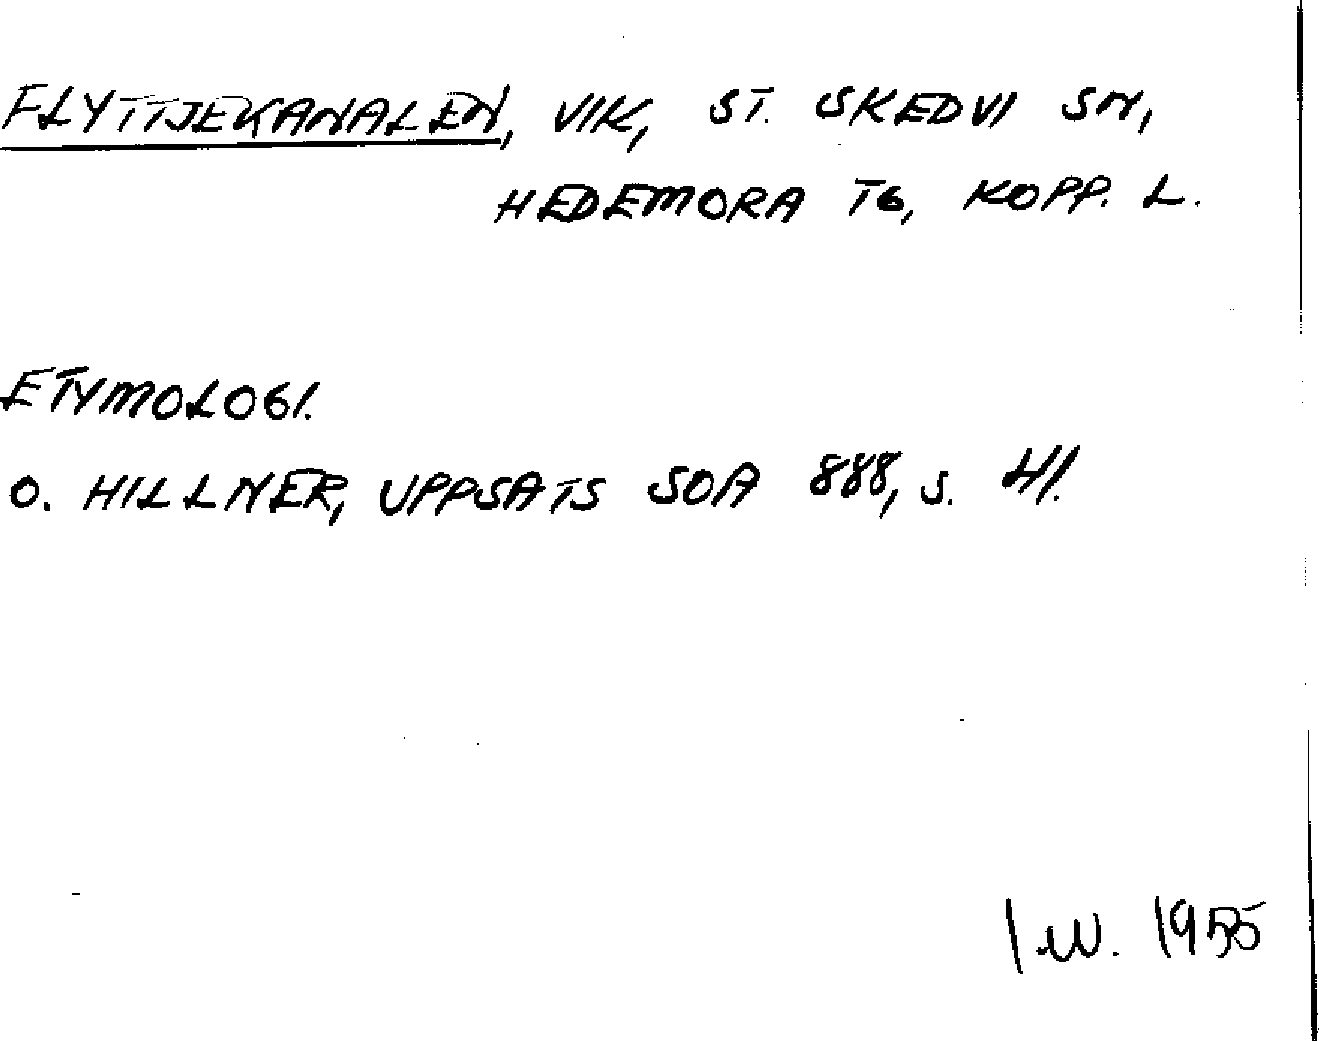 FLYTTJEKANALEN, VIK, ST. SKEDVI SN,
HEDEMORA TG, KOPP. L.
ETYMOLOGI.
O. HILLNER, UPPSATS SOA 888, S. 41.
I.W. 1955